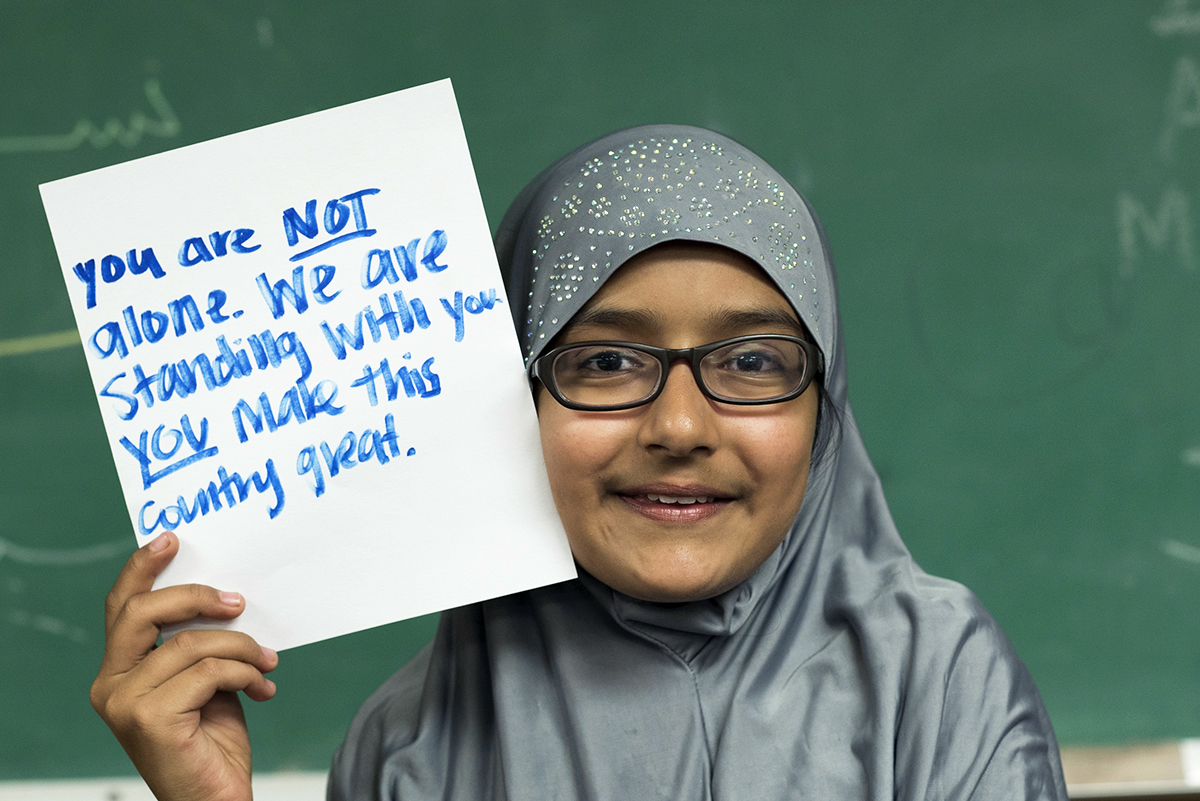 you are NOT
alone. We are
Standing with you.
YOU Make this
country great.
I
A
M